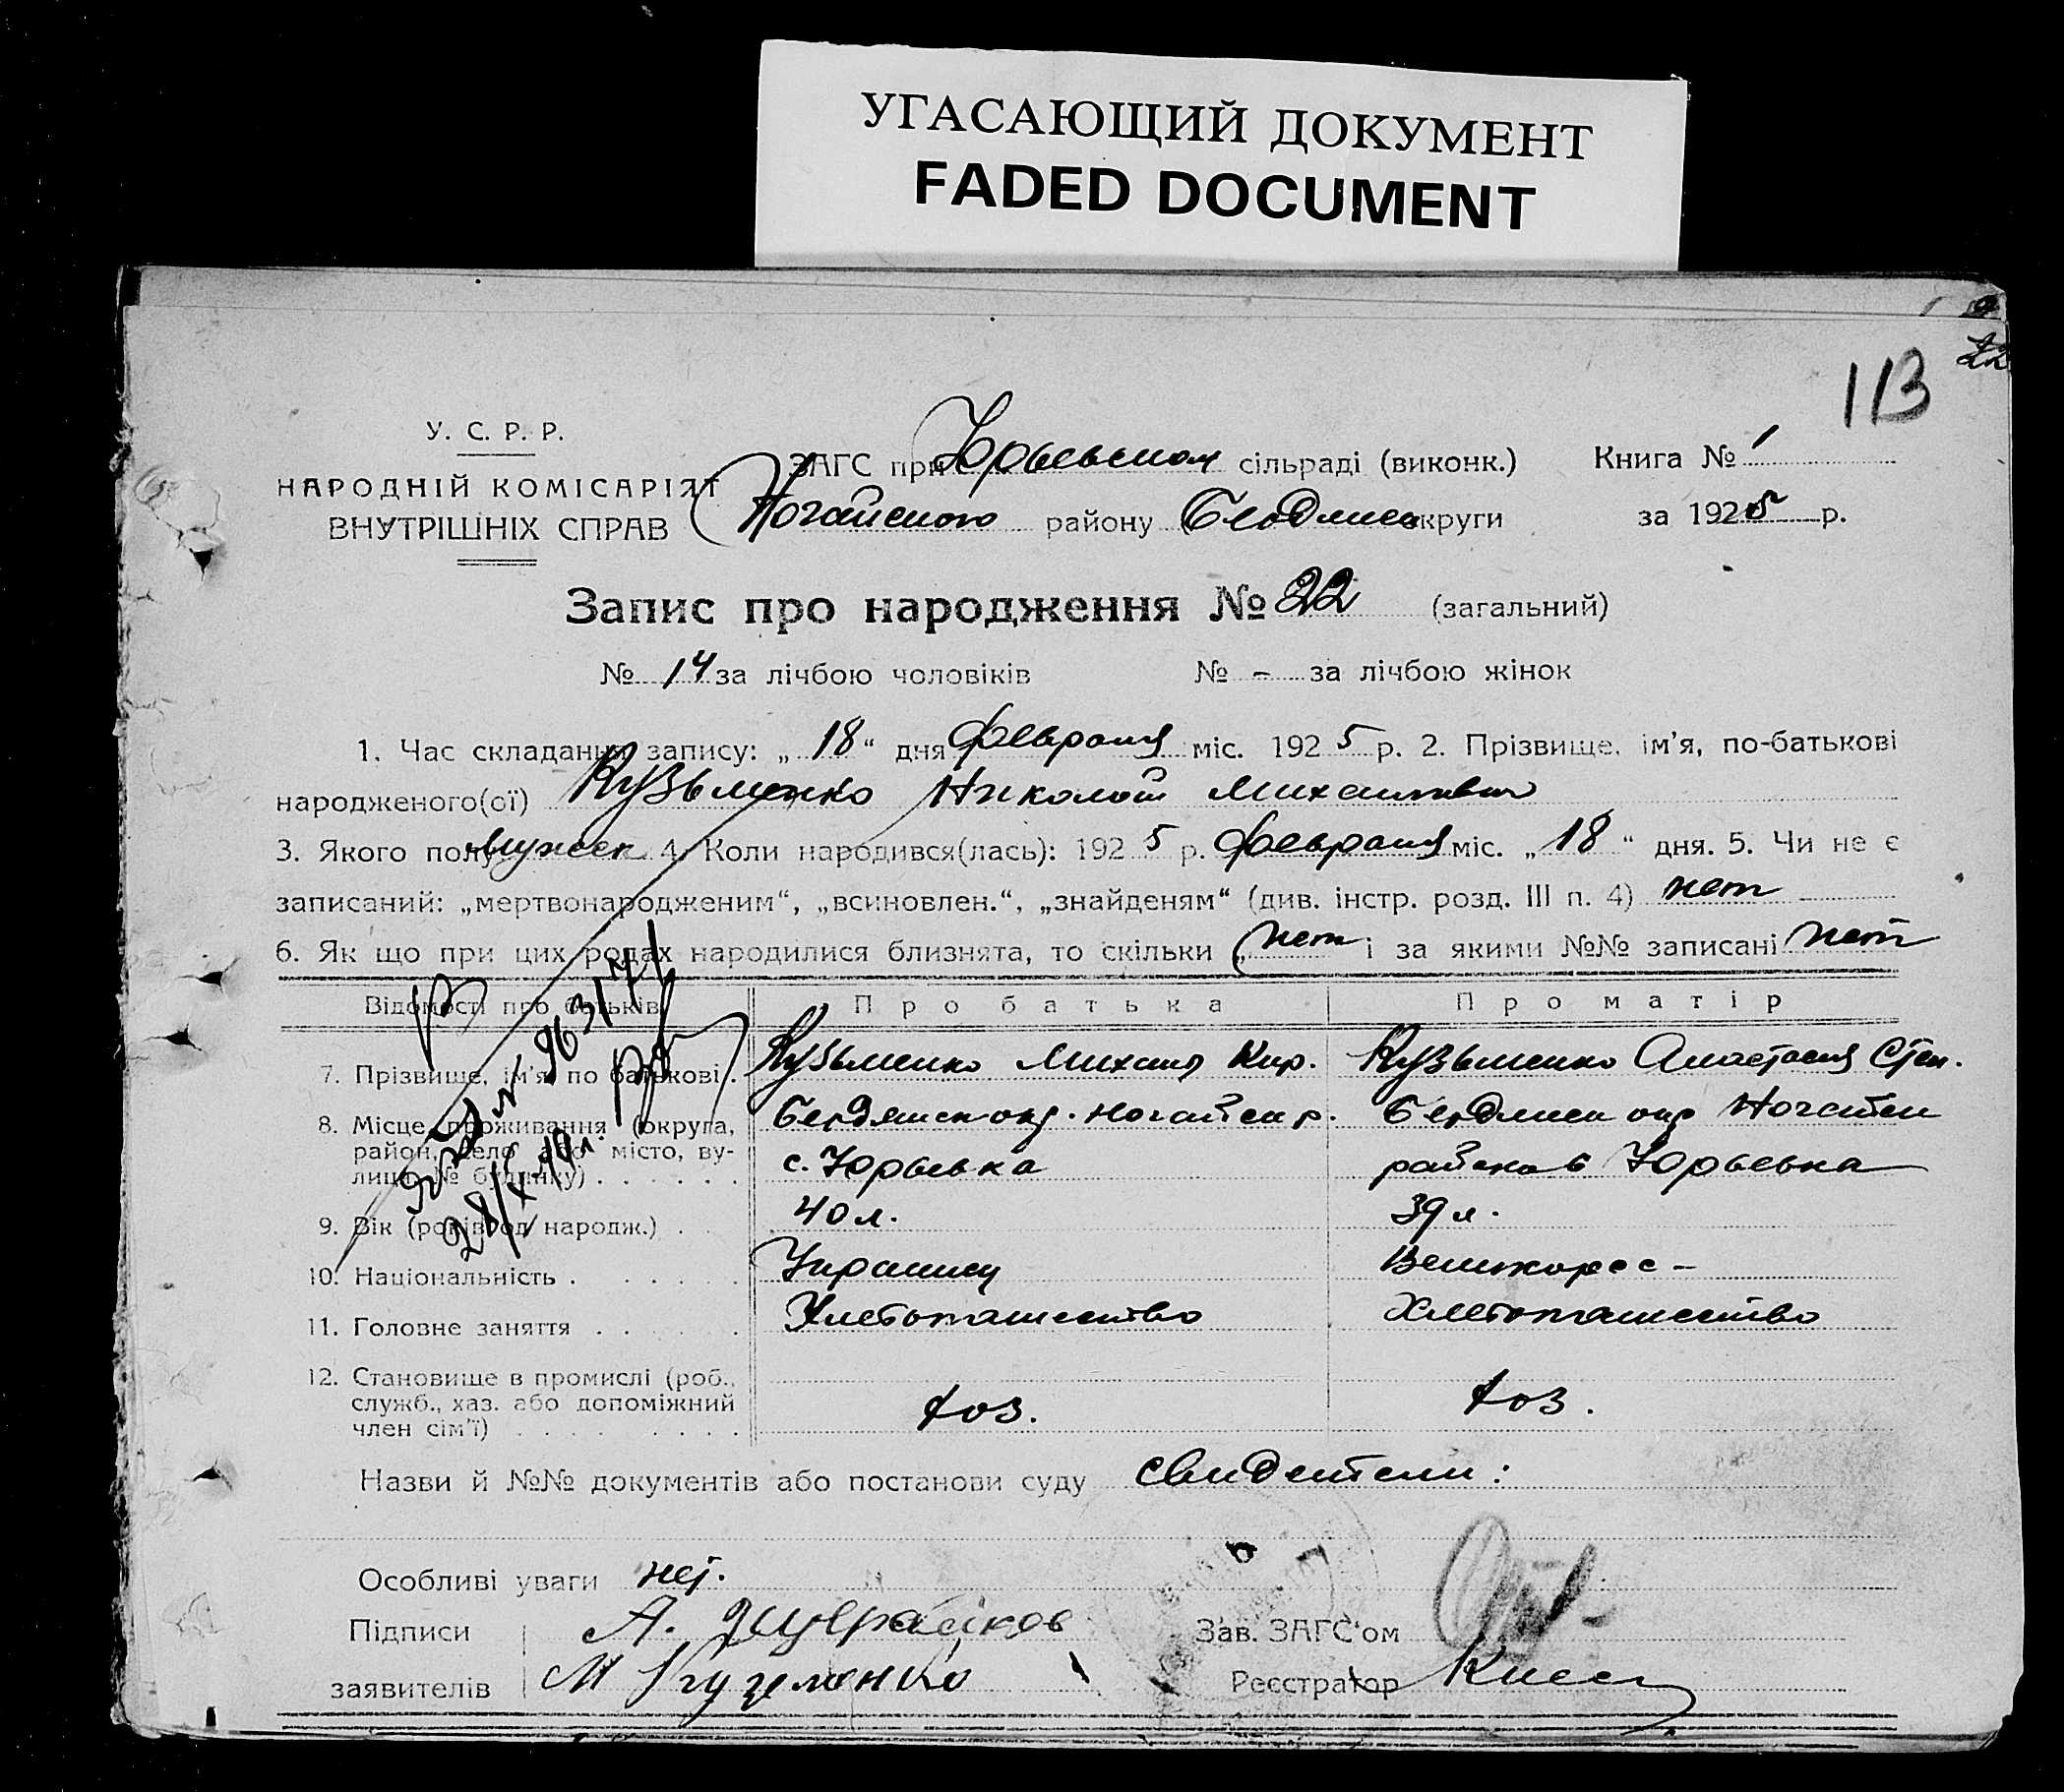 УГАСАЮЩИЙ ДОКУМЕНТ
FADED DOCUMENT
22
113
У. С. Р. Р.
НАРОДНІЙ КОМІСАРІЯТ
ВНУТРІШНІХ СПРАВ
ЗАГС при Юрьевском сільраді (виконк.)
Книга № 1
Ногайского району Бердянс округи
за 1925 р.
Запис про народження № 22 (загальний)
№ 14 за лічбою чоловіків № – за лічбою жінок
1. Час складання запису: „18“ дня февраля міс. 1925 р. 2. Прізвище, ім'я, по-батькові
народженого(ої) Кузьменко Николай Михайлович
3. Якого полу мужск 4. Коли народився(лась): 1925 р. февраля міс. „18“ дня. 5. Чи не є
записаний: „мертвонародженим“, „всиновлен.“, „знайденям“ (див. інстр. розд. III п. 4) нет
6. Як що при цих родах народилися близнята, то скільки „нет і за якими №№ записані нет
Відомості про батьків Про батька Про матір
7. Прізвище, ім'я, по батькові. Кузьменко Михаил Кир. Кузьменко Анастасия Степ.
8. Місце проживання (округа, Бердянск окр. Ногайск р. Бердянск окр Ногайск
район, село або місто, ву- с. Юрьевка района с Юрьевка
лиця, № будинку)
9. Вік (років од народж.) 40 л. 39 л.
10. Національність Украинец Великорос–
11. Головне заняття Хлебопашество Хлебопашество
12. Становище в промислі (роб.,
служб., хаз. або допоміжний хоз. хоз.
член сім'ї)
Назви й №№ документів або постанови суду свидетели:
Особливі уваги нет.
Підписи А.
Зав. ЗАГС'ом
заявителів М Кузменко
Реєстратор